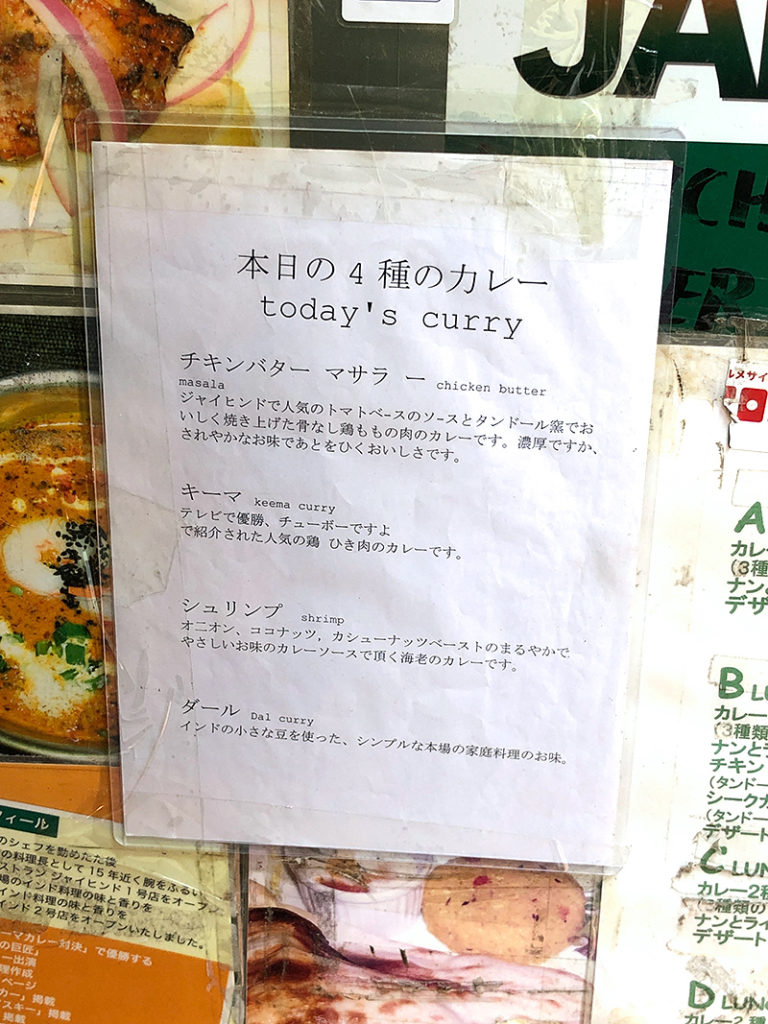 JA
本日の 4 種のカレー
today's curry
チキンバター マサラ ー chicken butter
masala
ジャイヒンドで人気のトマトベースのソースとタンドール窯でお
いしく焼き上げた骨なし鶏ももの肉のカレーです。濃厚ですか、
されやかなお味であとをひくおいしさです。
キーマ keema curry
テレビで優勝、チューボーですよ
で紹介された人気の鶏 ひき肉のカレーです。
シュリンプ shrimp
オニオン、ココナッツ, カシューナッツベーストのまるやかで
やさしいお味のカレーソースで頂く海老のカレーです。
ダール Dal curry
インドの小さな豆を使った、シンプルな本場の家庭料理のお味。
ルメサイ
A
カレー
(3種
ナン
デザ
B LU
カレー
(3種類
ナンとラ
チキン
(タンドー
シークカ
(タンドー
デザート
C LUN
カレー2種
(3種類の
ナンとライ
デザート
D LUNC
カレー2種
フィール
のシェフを勤めたた後
の料理長として15年近く腕をふるい、
ストラン ジャイヒンド 1号店をオープン
場のインド料理の味と香りを
インド料理の味と香りを
インド 2号店をオープンいたしました。
ーマカレー対決」で優勝する
の巨匠」
ー出演
理作成
ページ
カー」掲載
スキー」掲載
掲載